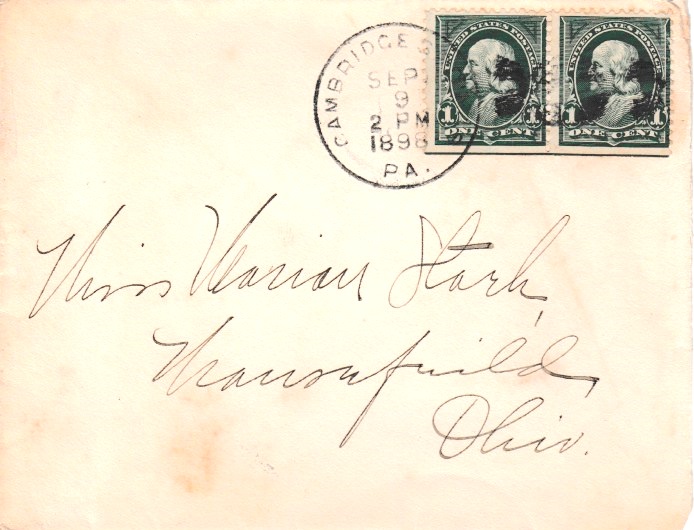 CAMBRIDGE S
SEP
9
2 PM
1898
PA.
UNITED STATES POSTAGE
1 1
ONE CENT
UNITED STATES POSTAGE
1 1
ONE CENT
Miss Marian Stark,
Mansfield,
Ohio.